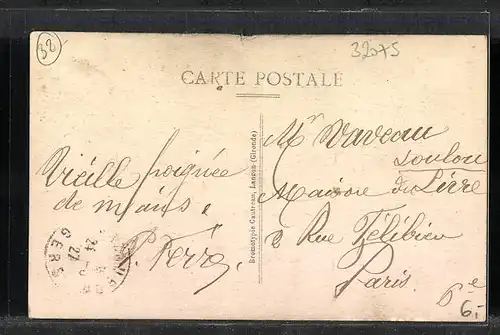 32
32075
CARTE POSTALE
Vieille poignée
de mains.
P. Ferra
24
27
GERS
Bromotypie Gautreau, Langon (Gironde)
Mr Vaveau
Toulou
Maison du Livre
Rue Félibien
Paris.
6e
6.-